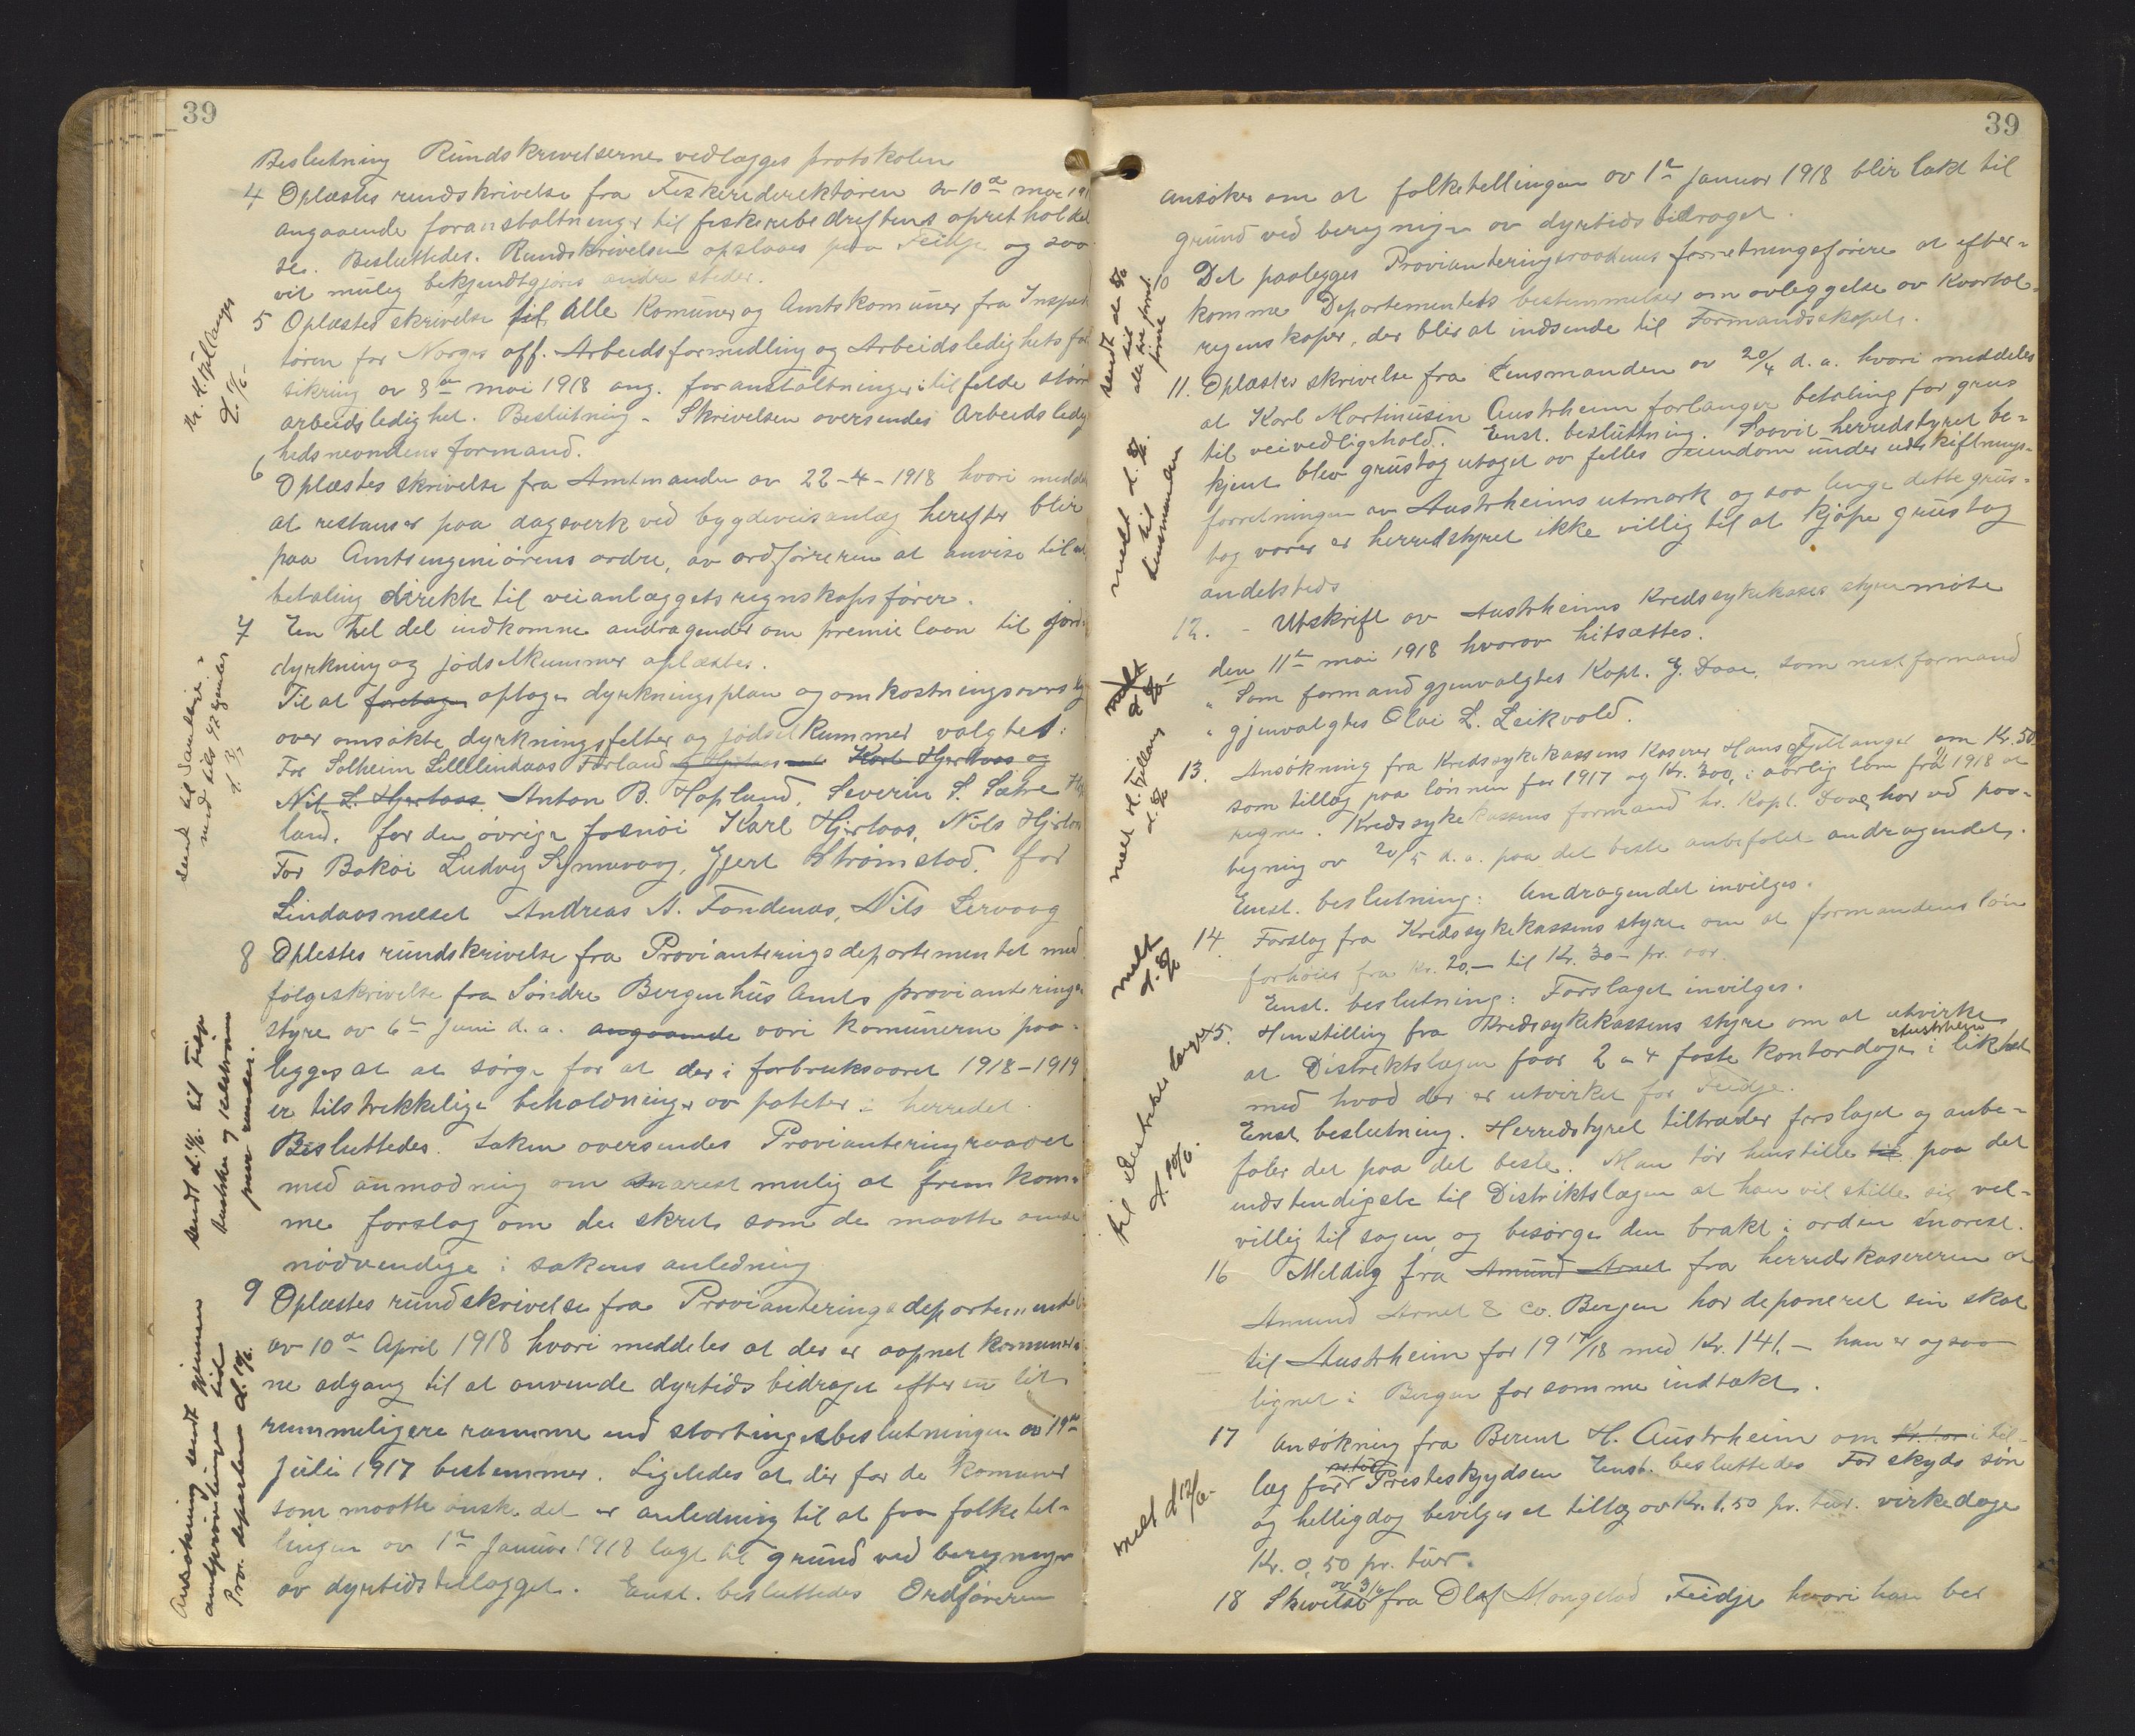 39
Beslutning Rundskrivelserne vedlægges protokolen
4 Oplæstes rundskrivelse fra Fiskeridirektøren av 10de mai 191
angaaende foranstaltninger til fiskeribedriftens oprethol del
se. Besluttedes. Rundskrivelsen opslaaes paa Feidje og saa
vit mulig bekjendtgjøres andre steder.
5 Oplæstes skrivelse til Alle Komuner og Amtskomuner fra Inspek
tøren for Norges off. Arbeidsformidling og Arbeidsledighetsfor
sikring av 8de mai 1918 ang. foranstaltninger i tilfelde større
arbeidsledighet. Beslutning - Skrivelsen oversendes Arbeidsledig
hedsnevndens formand.
6 Oplæstes skrivelse fra Amtmanden av 22-4-1918 hvori meddel
at restanser paa dagsverk ved bygdeveisanlæg herefter blir
paa Amtsingeniørens ordre, av ordføreren at anvise til ut
betaling direkte til veianlæggets regnskapsfører.
7 En hel del indkomne andragender om premie laan til jord-
dyrkning og jødselkummer oplæstes.
Til at foretage optage dyrkningsplan og omkostningsovers
over omsøkte dyrkningsfelter og jødselkummer valgtes:
For Solheim Lillelindaas Førland Karl Hjertaas og
Nils L. Hjertaas Anton B. Hoplund, Severin S. Sætre
land. for den øvrige fosnøi Karl Hjertaas, Nils Hjertaas
For Bakøi Ludvig Synnevaag, Gjert Strømstad. for
Lindaasneset Andreas A. Fondenes, Nils Lervaag
8 Oplestes rundskrivelse fra Provianteringsdepartementet med
følgeskrivelse fra Søndre Bergenhus Amts provianterings
styre av 6te Juni d.a. angaaende vori komunerne paa-
legges at at sørge for at der i forbruksaaret 1918-1919
er tilstrekkelige beholdninger av poteter i herredet.
Besluttedes. Saken oversendes Provianteringsraadet
med anmodning om snarest mulig at fremkom-
me forslag om de skret som de maatte anse
nødvendige i sakens anledning
9 Oplæstes rundskrivelse fra Provianteringsdepartementet
av 10de April 1918 hvori meddeles at der er aapnet komuner
ne adgang til at anvende dyrtidsbidraget efter en lit
rummeligere ramme end stortingsbeslutningen av 19de
Juli 1917 bestemmer. Ligeledes at der for de komuner
som maatte ønske det er anledning til at faa folketel-
lingen av 1te Januar 1918 lagt til grund ved beregningen
av dyrtidstillægget. Enst. besluttedes Ordføreren
hr. H. Fjellanger
d. 17/6-
sendt til Landbrugs
med tils 42 gjenler
d. 3/7
sendt d. 14/6. til Fedje
Sendt
Ansøkning sendt
antprovianteringen tid
Prov. departem d. 19/6.
39
ansøker om at folketellingen av 1te Januar 1918 blir lakt til
grund ved beregningen av dyrtidsbidraget.
10 Det paalegges Provianteringsraadets forretningsførere at efter-
komme Departementets bestemmelser om avleggelse av Kvartal-
regenskaper, der blir at indsende til Formandskapet.
11. Oplæstes skrivelse fra Lensmanden av 20/4 d.a. hvori meddeles
at Karl Martinusin Austrheim forlanger betaling for grus
til veivedligehold. Enst. besluttning. Saavit herredstyret be-
kjent blev grustag utaget av felles eiendom under utskiftnings-
forretningen av Austrheims utmark og saa lenge dette grus-
tag varer er herredstyret ikke villig til at kjøpe grustag
andetsteds
12. - Utskrift av Austrheims Kredssykekasses styremøte
den 11te mai 1918 hvorav hitsættes.
" Som formand gjenvalgtes Kapt. G. Daae, som nestformand
" gjenvalgtes Olai L. Leikvold.
13. Ansøkning fra Kredssykekassens Kaserer Hans Fjellanger om Kr. 50
som tillæg paa lønnen for 1917 og Kr. 300,- i aarlig løn fra 1918 at
regne. Kredssykekassens formand hr. Kapt. Daae, har ved paa-
tegning av 20/5 d.a. paa det beste anbefalet andragendet.
Enst. beslutning: Andragendet invilges.
14. Forslag fra Kredssykekassens styre om at formandens løn
forhøies fra Kr. 20,- til Kr. 30- pr. aar.
Enst. beslutning: Forslaget invilges.
15. Henstilling fra Kredssykekassens styre om at utvirke
at Distriktslægen faar 2 a 4 faste kontordage i Austrheim likhet
med hvad der er utvirket for Feidje.
Enst. beslutning. Herredstyret tiltræder forslaget og anbe-
faler det paa det beste. Man tør henstille til paa det
indstendigste til Distriktslægen at han vil stille sig vel-
villig til sagen og besørge den brakt i orden snarest.
16 Melding fra Amund Arnet fra herredskasereren at
Amund Arnet & Co. Bergen har deponeret sin skat
til Austrheim for 1917/18 med Kr. 141,- han er ogsaa
lignet i Bergen for samme indtækt.
17 Ansøkning fra Berent H. Austrheim om i til-
læg for Presteskydsen Enst. besluttedes For skyds søn
og helligdag bevilges et tillæg av Kr. 1.50 pr. tur. virkedage
Kr. 0,50 pr. tur.
18 Skrivelse av 3/6 fra Olaf Mongstad Feidje hvori han ber
meldt d. 8/6.
til
Lensmannen
melt
d. 8/6-
melt H. Fjellang
d. 8/6
melt
d. 8/6
til Distriktslægen
d. 20/6.
melt d 12/6-